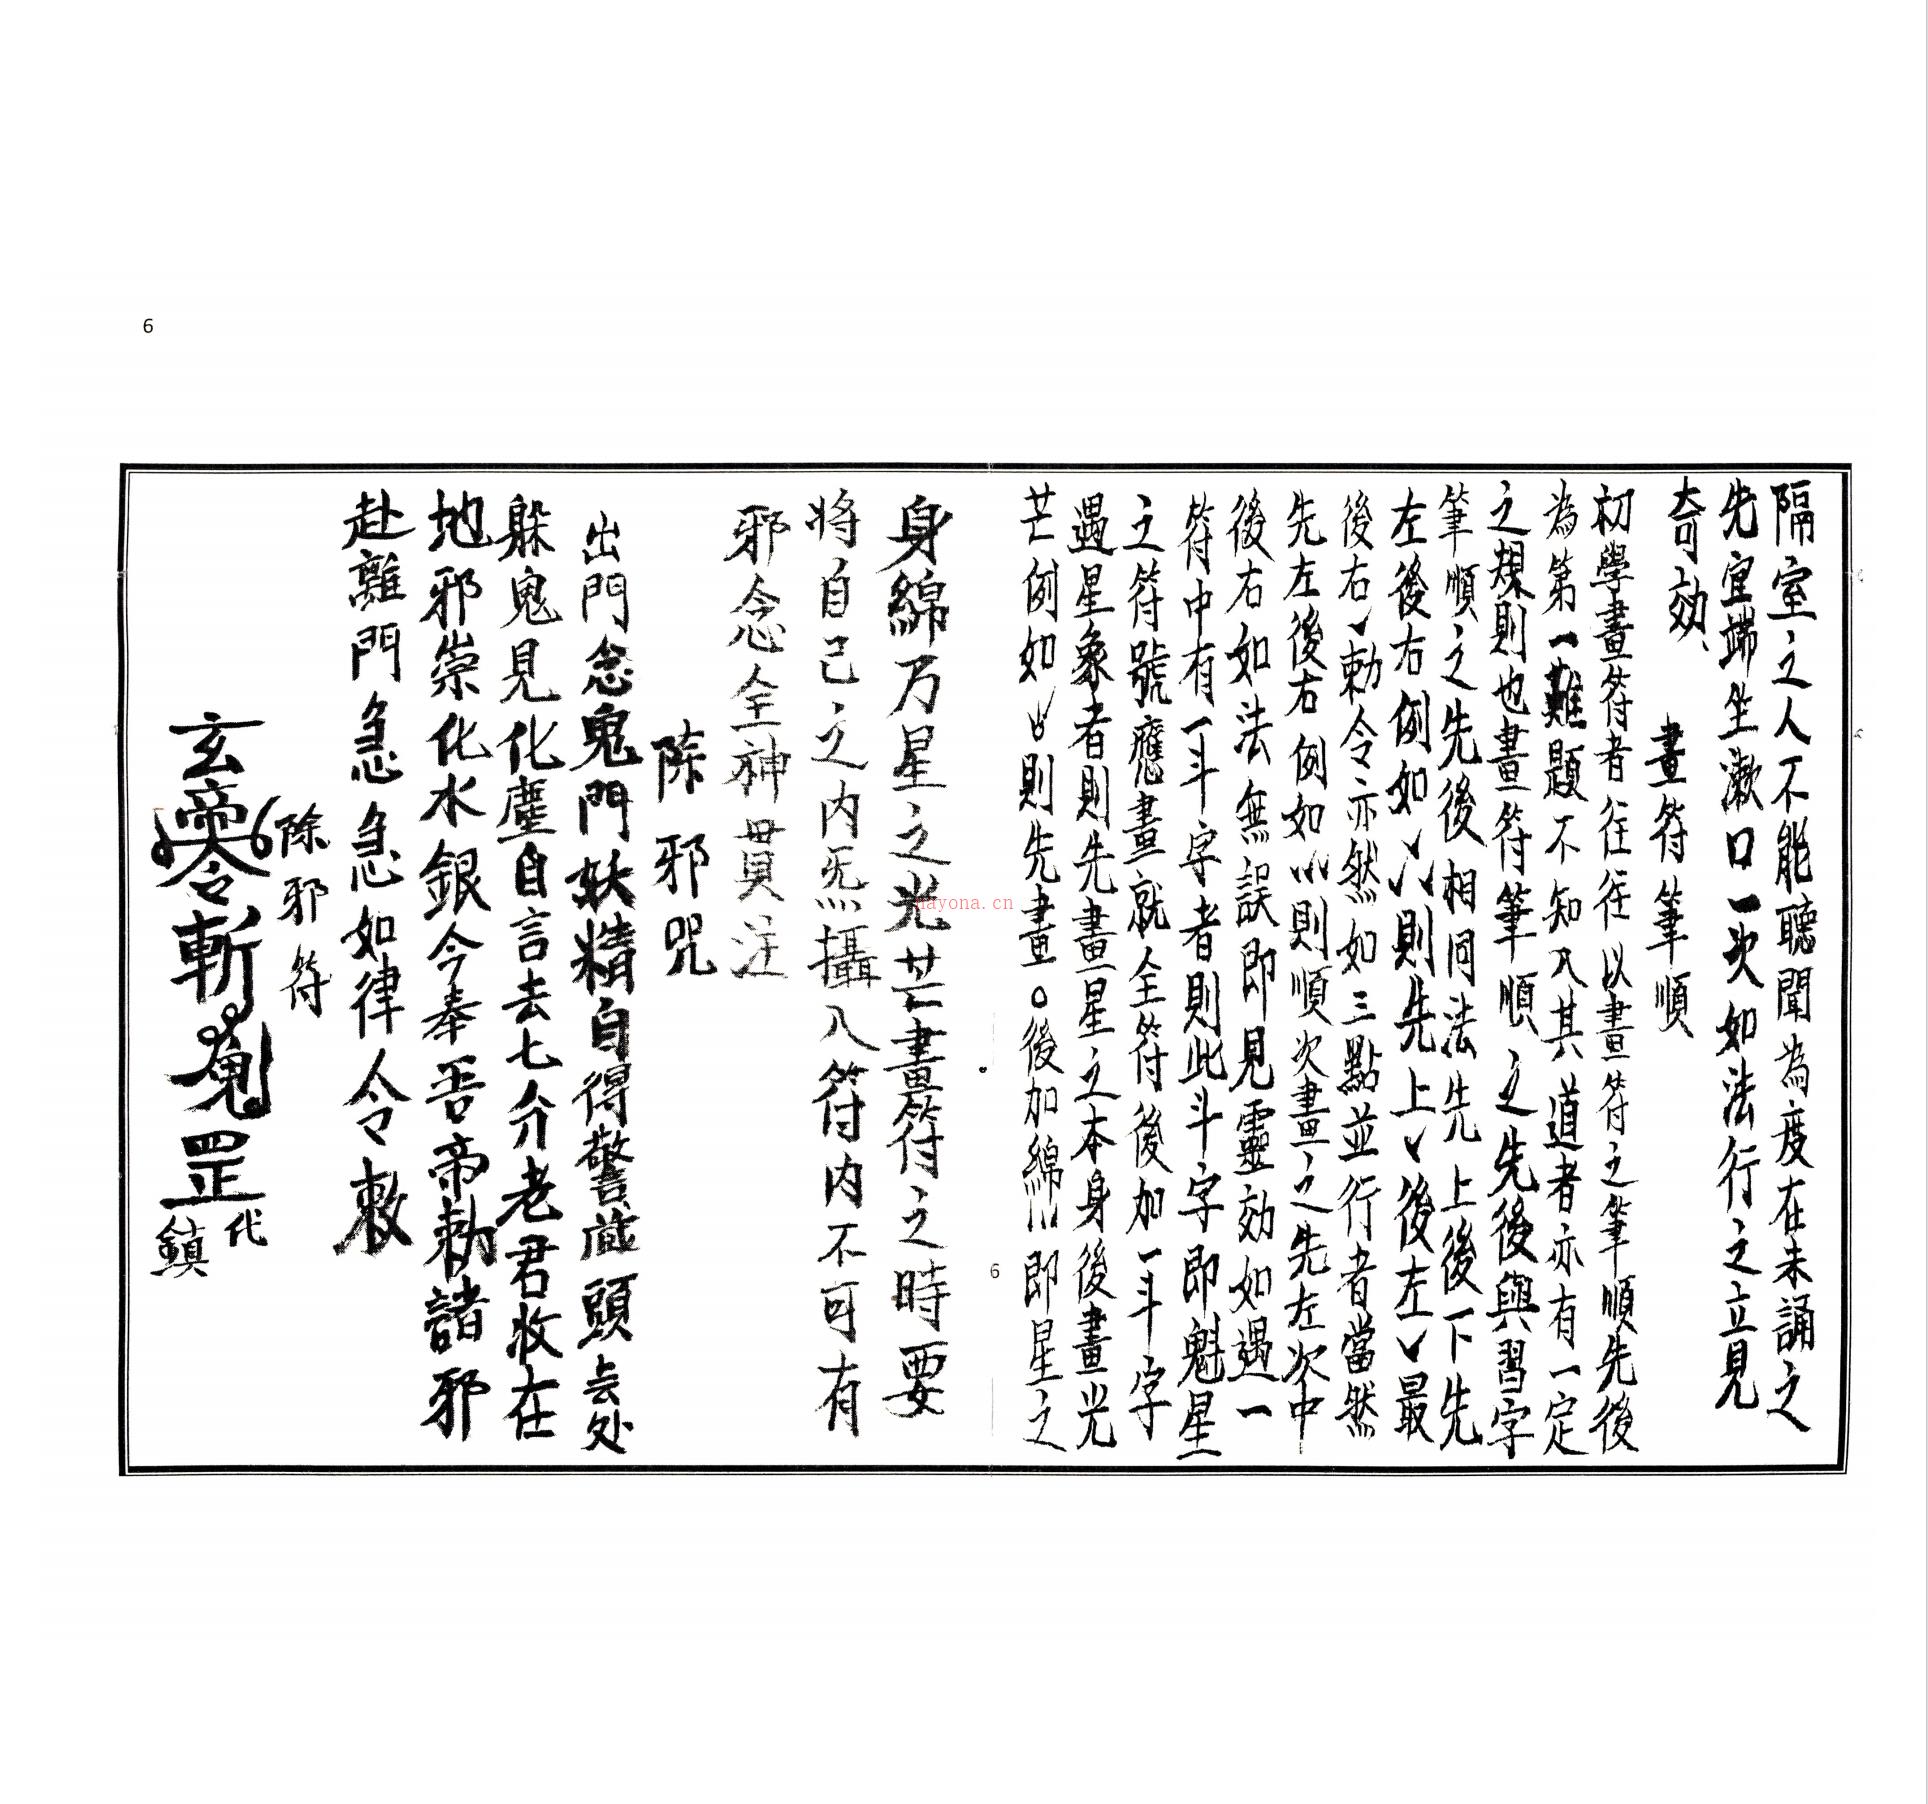 6
隔室之人不能聽聞為度在未誦之
先宜端坐漱口一次如法行之立見
奇効、
畫符筆順
初學畫符者往往以畫符之筆順先後
為第一難題不知入其道者亦有一定
之規則也畫符筆順之先後與習字
筆順之先後相同法先上後下先
左後右例如則先上後左最
後右勅令亦然如三點並行者當然
先左後右例如則順次畫之先左次中
後右如法無誤即見靈効如遇一
符中有一斗字者則此斗字即魁星
之符號應畫就全符後加一斗字
遇星象者則先畫星之本身後畫光
芒例如則先畫○後加綿即星之
身綿乃星之光芒畫符之時要
將自己之內炁攝入符內不可有
邪念全神貫注
除邪咒
出門念鬼門妖精自得警藏頭去处
躲鬼見化塵自言去七介老君收在
地邪祟化水銀今奉吾帝勅諸邪
赴離門急急如律令敕
除邪符
玄帝令斬罡
代
鎮
6
nayona.cn